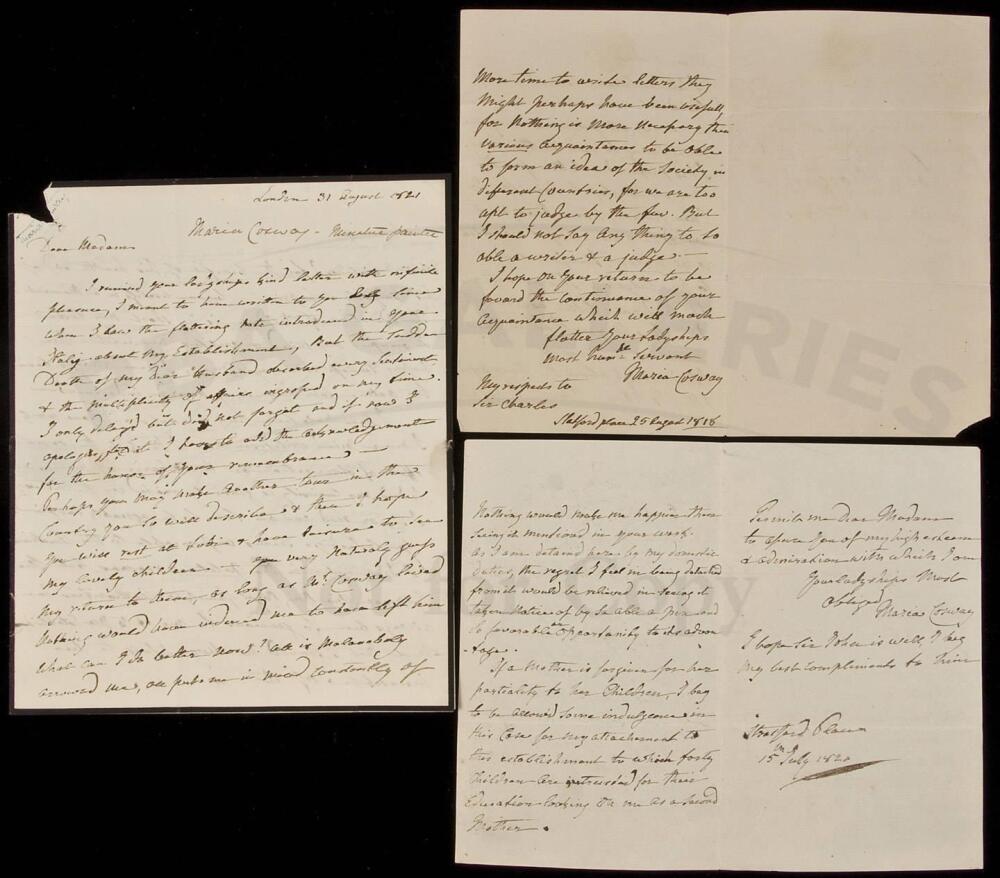 London 31 August 1821
Maria Cosway - Miniature painter
Dear Madam
I received your Ladyships kind letter with infinite
pleasure, I meant to have written to you since
when I saw the flattering note introduced in your
Italy about my Establishment, But the sudden
Death of my dear Husband absorbed every sentiment
& the multiplicity of affairs engrossed on my time.
I only delay'd but did not forget and if now I
apologise for it I have to add the acknowledgement
for the honor of your remembrance —
Perhaps you may make another tour in the
Country you so well describe & then I hope
you will rest at Lodi & have leisure to see
my lovely children you very naturaly guess
my return to them, as long as Mr. Cosway lived
Nothing would have induced me to have left him
What can I do better now? all is Malancholy
arround me, all puts me in mind constantly of
More time to write letters they
Might perhaps have been usefull
for Nothing is More Necessary than
various acquaintances to be able
to form an idea of the Society in
different Countries, for we are too
apt to judge by the few. But
I should not say any thing to so
able a writer & a judge —
I hope on your return to be
favord the continuance of your
acquaintance which will much
flatter your Ladyships
most humb. Servant
Maria Cosway
My respects to
Sir Charles
Statford place 25 August 1818
Nothing would make me happier than
seeing it mentioned in your work.
As I am detained here by my domestic
duties, the regret I feel in being detached
from it would be relieved in seeing it
taken notice of by so able a pen and
so favorable opportunity to its advan
-tage.
If a Mother is forgiven for her
partiality to her Children, I beg
to be allowed some indulgence in
this Case for my attachement to
this establishment to which forty
Children are intrusted for their
Education looking on me as a second
Mother.
Permit me Dear Madam
to assure you of my high esteem
& admiration with which I am
Your Ladyships Most
obliged
Maria Cosway
I hope Sir John is well, I beg
my best compliments to him
Stratford Place
15th July 1820